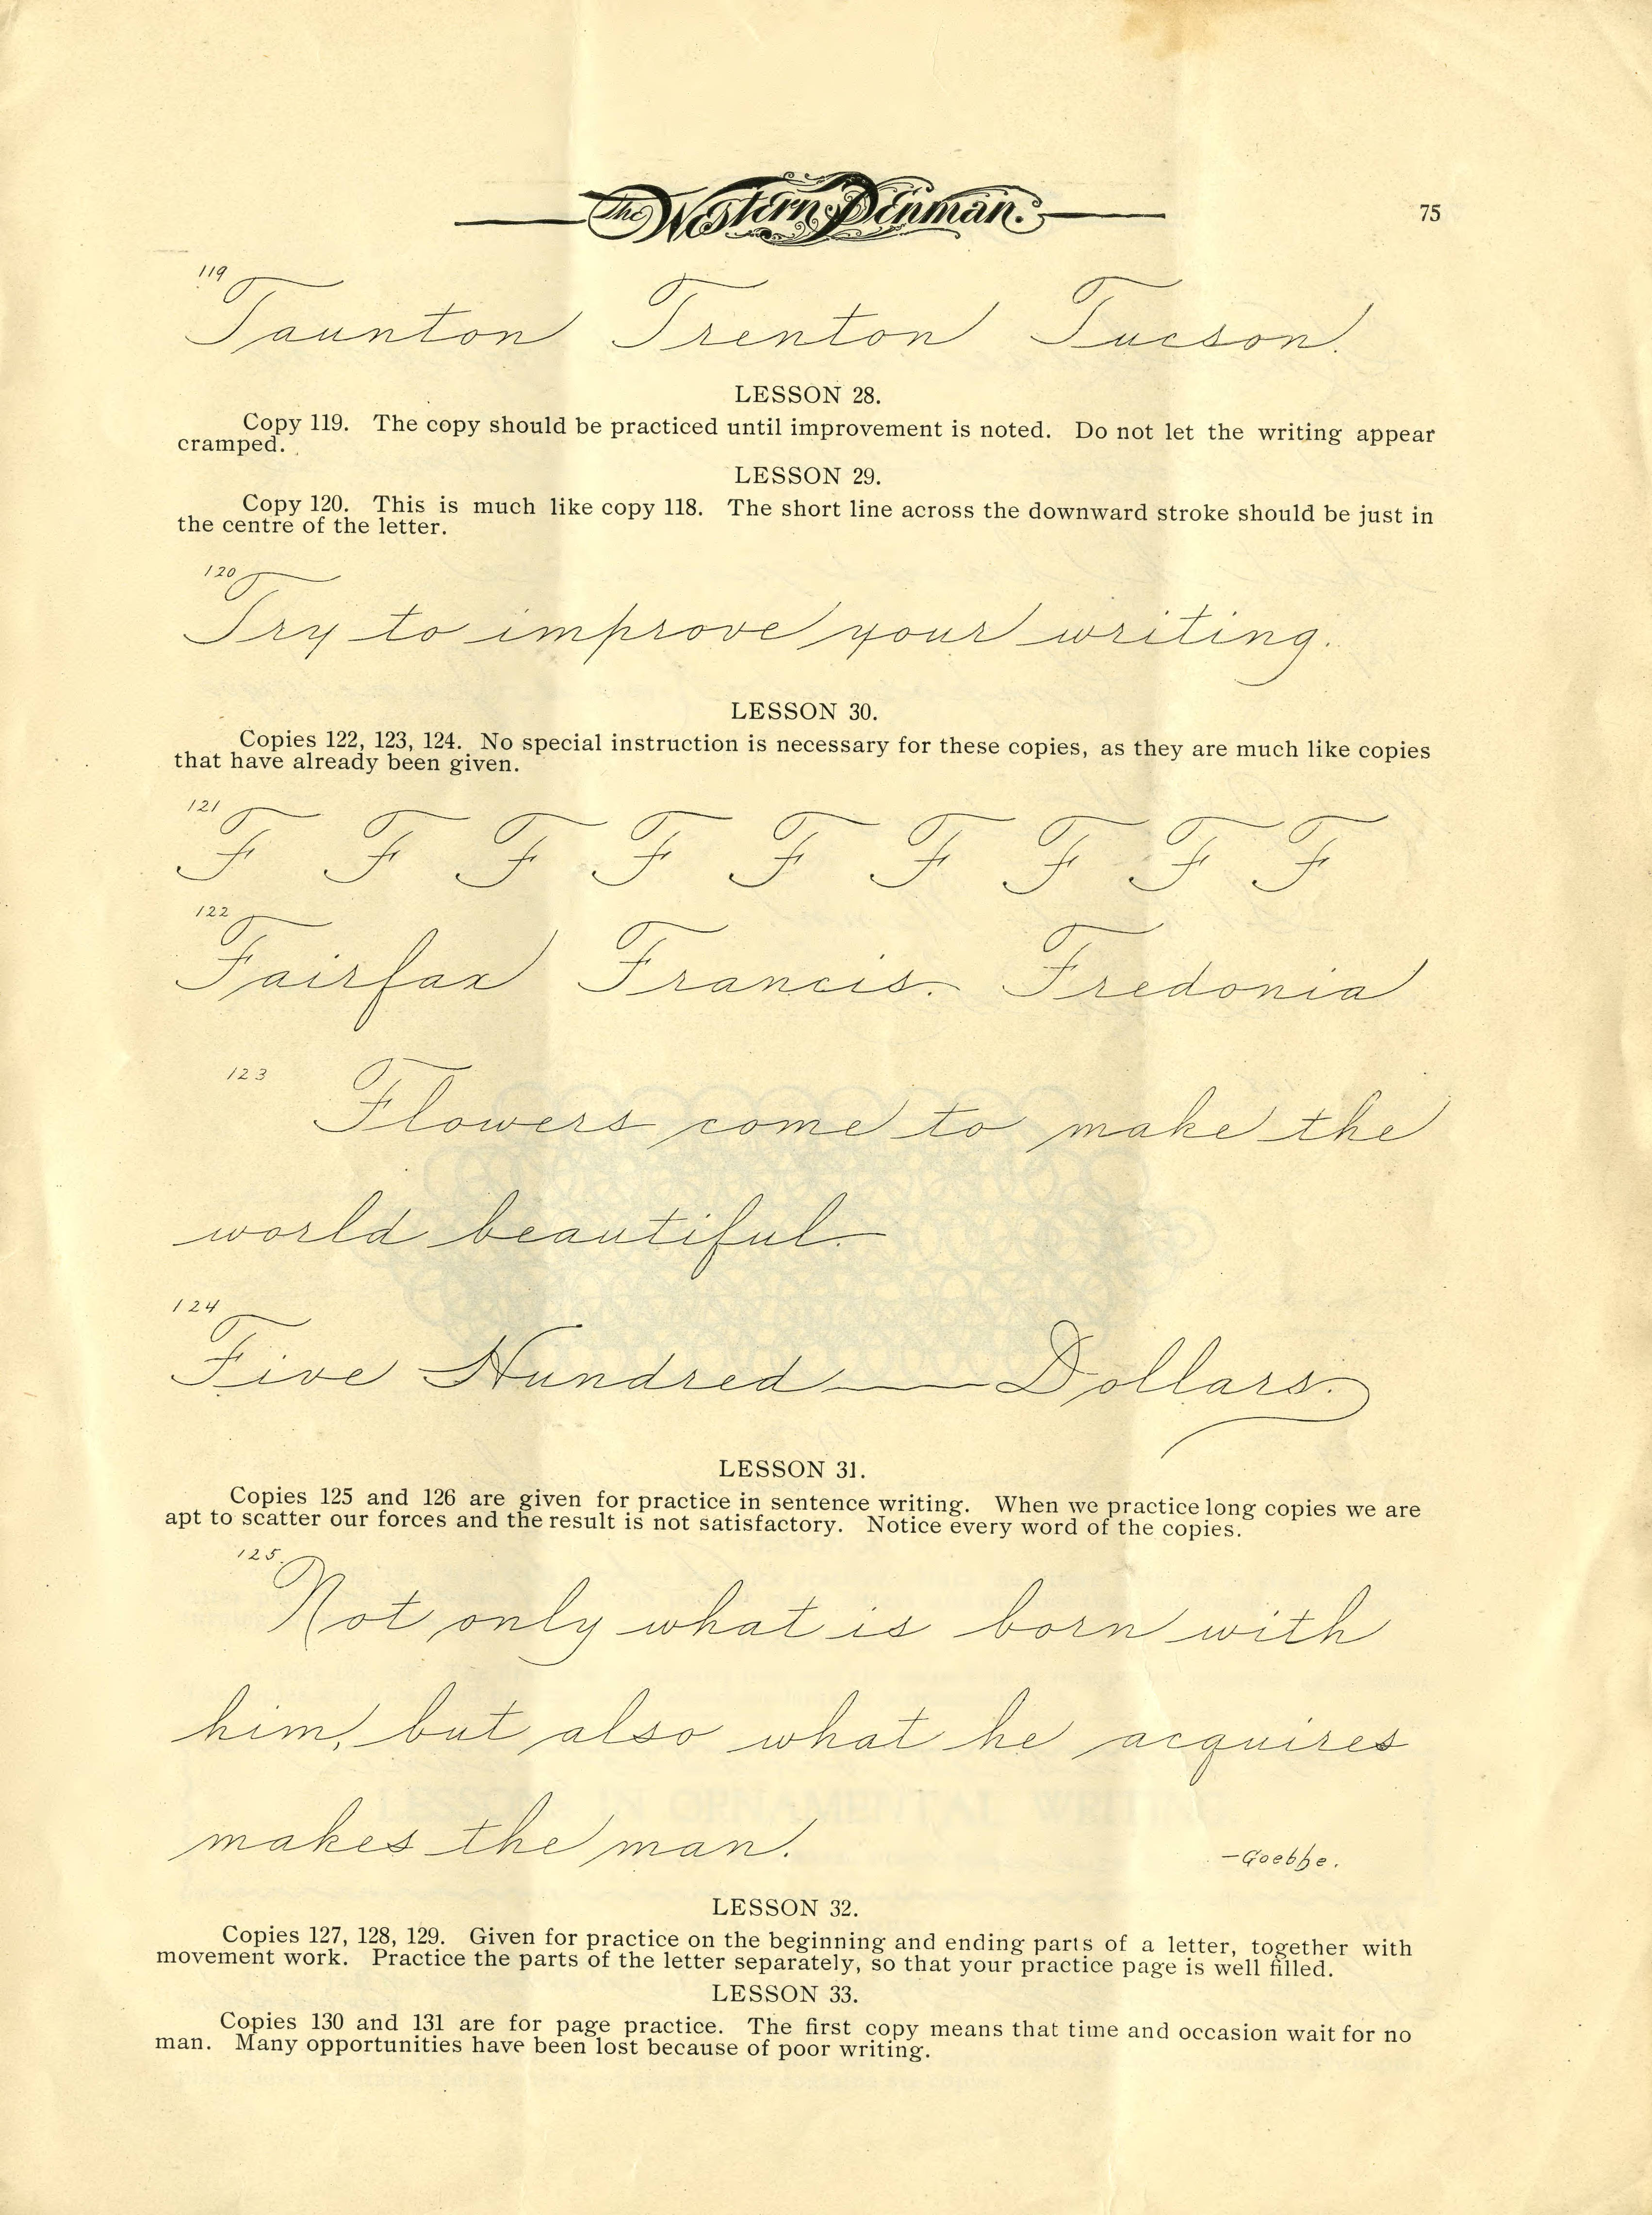 The Western Penman.
75
119
Taunton Trenton Tucson.
LESSON 28.
Copy 119. The copy should be practiced until improvement is noted. Do not let the writing appear
cramped.
LESSON 29.
Copy 120. This is much like copy 118. The short line across the downward stroke should be just in
the centre of the letter.
120
Try to improve your writing.
LESSON 30.
Copies 122, 123, 124. No special instruction is necessary for these copies, as they are much like copies
that have already been given.
121
F F F F F F F F F
122
Fairfax Francis. Fredonia
123
Flowers come to make the
world beautiful.
124
Five Hundred — Dollars.
LESSON 31.
Copies 125 and 126 are given for practice in sentence writing. When we practice long copies we are
apt to scatter our forces and the result is not satisfactory. Notice every word of the copies.
125.
Not only what is born with
him, but also what he acquires
makes the man.
—Goethe.
LESSON 32.
Copies 127, 128, 129. Given for practice on the beginning and ending parts of a letter, together with
movement work. Practice the parts of the letter separately, so that your practice page is well filled.
LESSON 33.
Copies 130 and 131 are for page practice. The first copy means that time and occasion wait for no
man. Many opportunities have been lost because of poor writing.